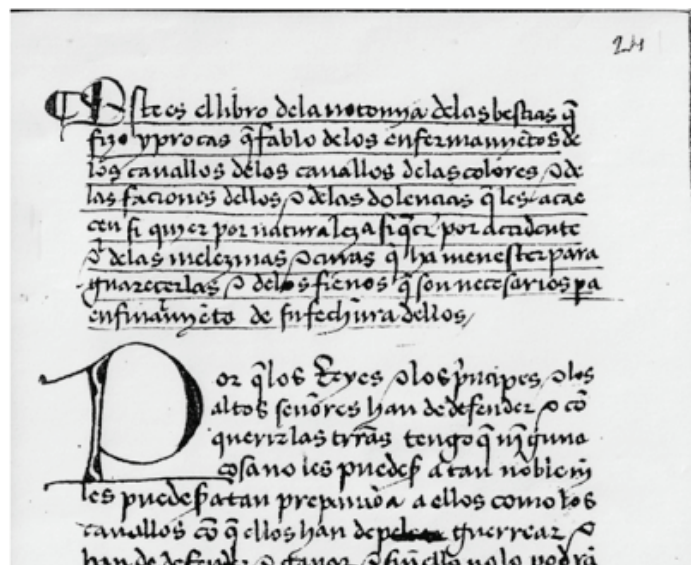 24
Este es el libro dela notomya delas bestias q̃
fizo yprocas q̃ fablo delos enfermamyẽtos de
los cauallos delos cauallos delas colores ⁊ de
las faciones dellos ⁊ delas dolencias q̃ les acae
cen si quyer por naturaleza si q̃er por accidente
⁊ delas melezinas ⁊ curas q̃ hã menester para
guarecerlas ⁊ delos frenos q̃ son necesarios pa
enfrenamyẽto de su fechura dellos
Por q̃ los Reyes ⁊ los prĩcipes ⁊ los
altos señores han de defender ⁊ cõ
querir las trr̃as tengo q̃ nĩguna
cosa no les puede ser a tan noble nj̃
les puede ser a tan a ellos como los
cauallos cõ q̃ ellos han de guerrear ⁊
han de defender ⁊ ganar ⁊ sin ello no lo podrã